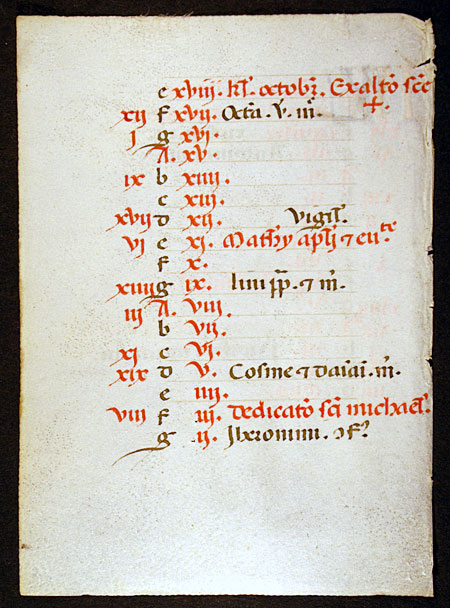 e xviii. kl̄. octobr̄. Exaltō sc̄e
xij f xvij. Octā. v̄. m̄. +
j g xvj.
A. xv.
ix b xiiii.
c xiii.
xvij d xij. vigił.
vj e xj. Mathy apłi ⁊ eu.te
f x.
xiiij g ix. limi pp̄. ⁊ m̄.
iij A. viij.
b vij.
xj c vj.
xix d v. Cosme ⁊ daīai. m̄.
e iiij.
viij f iij. Dedicatō sc̄i michaeł.
g ij. Jheronimi. ꝯf.